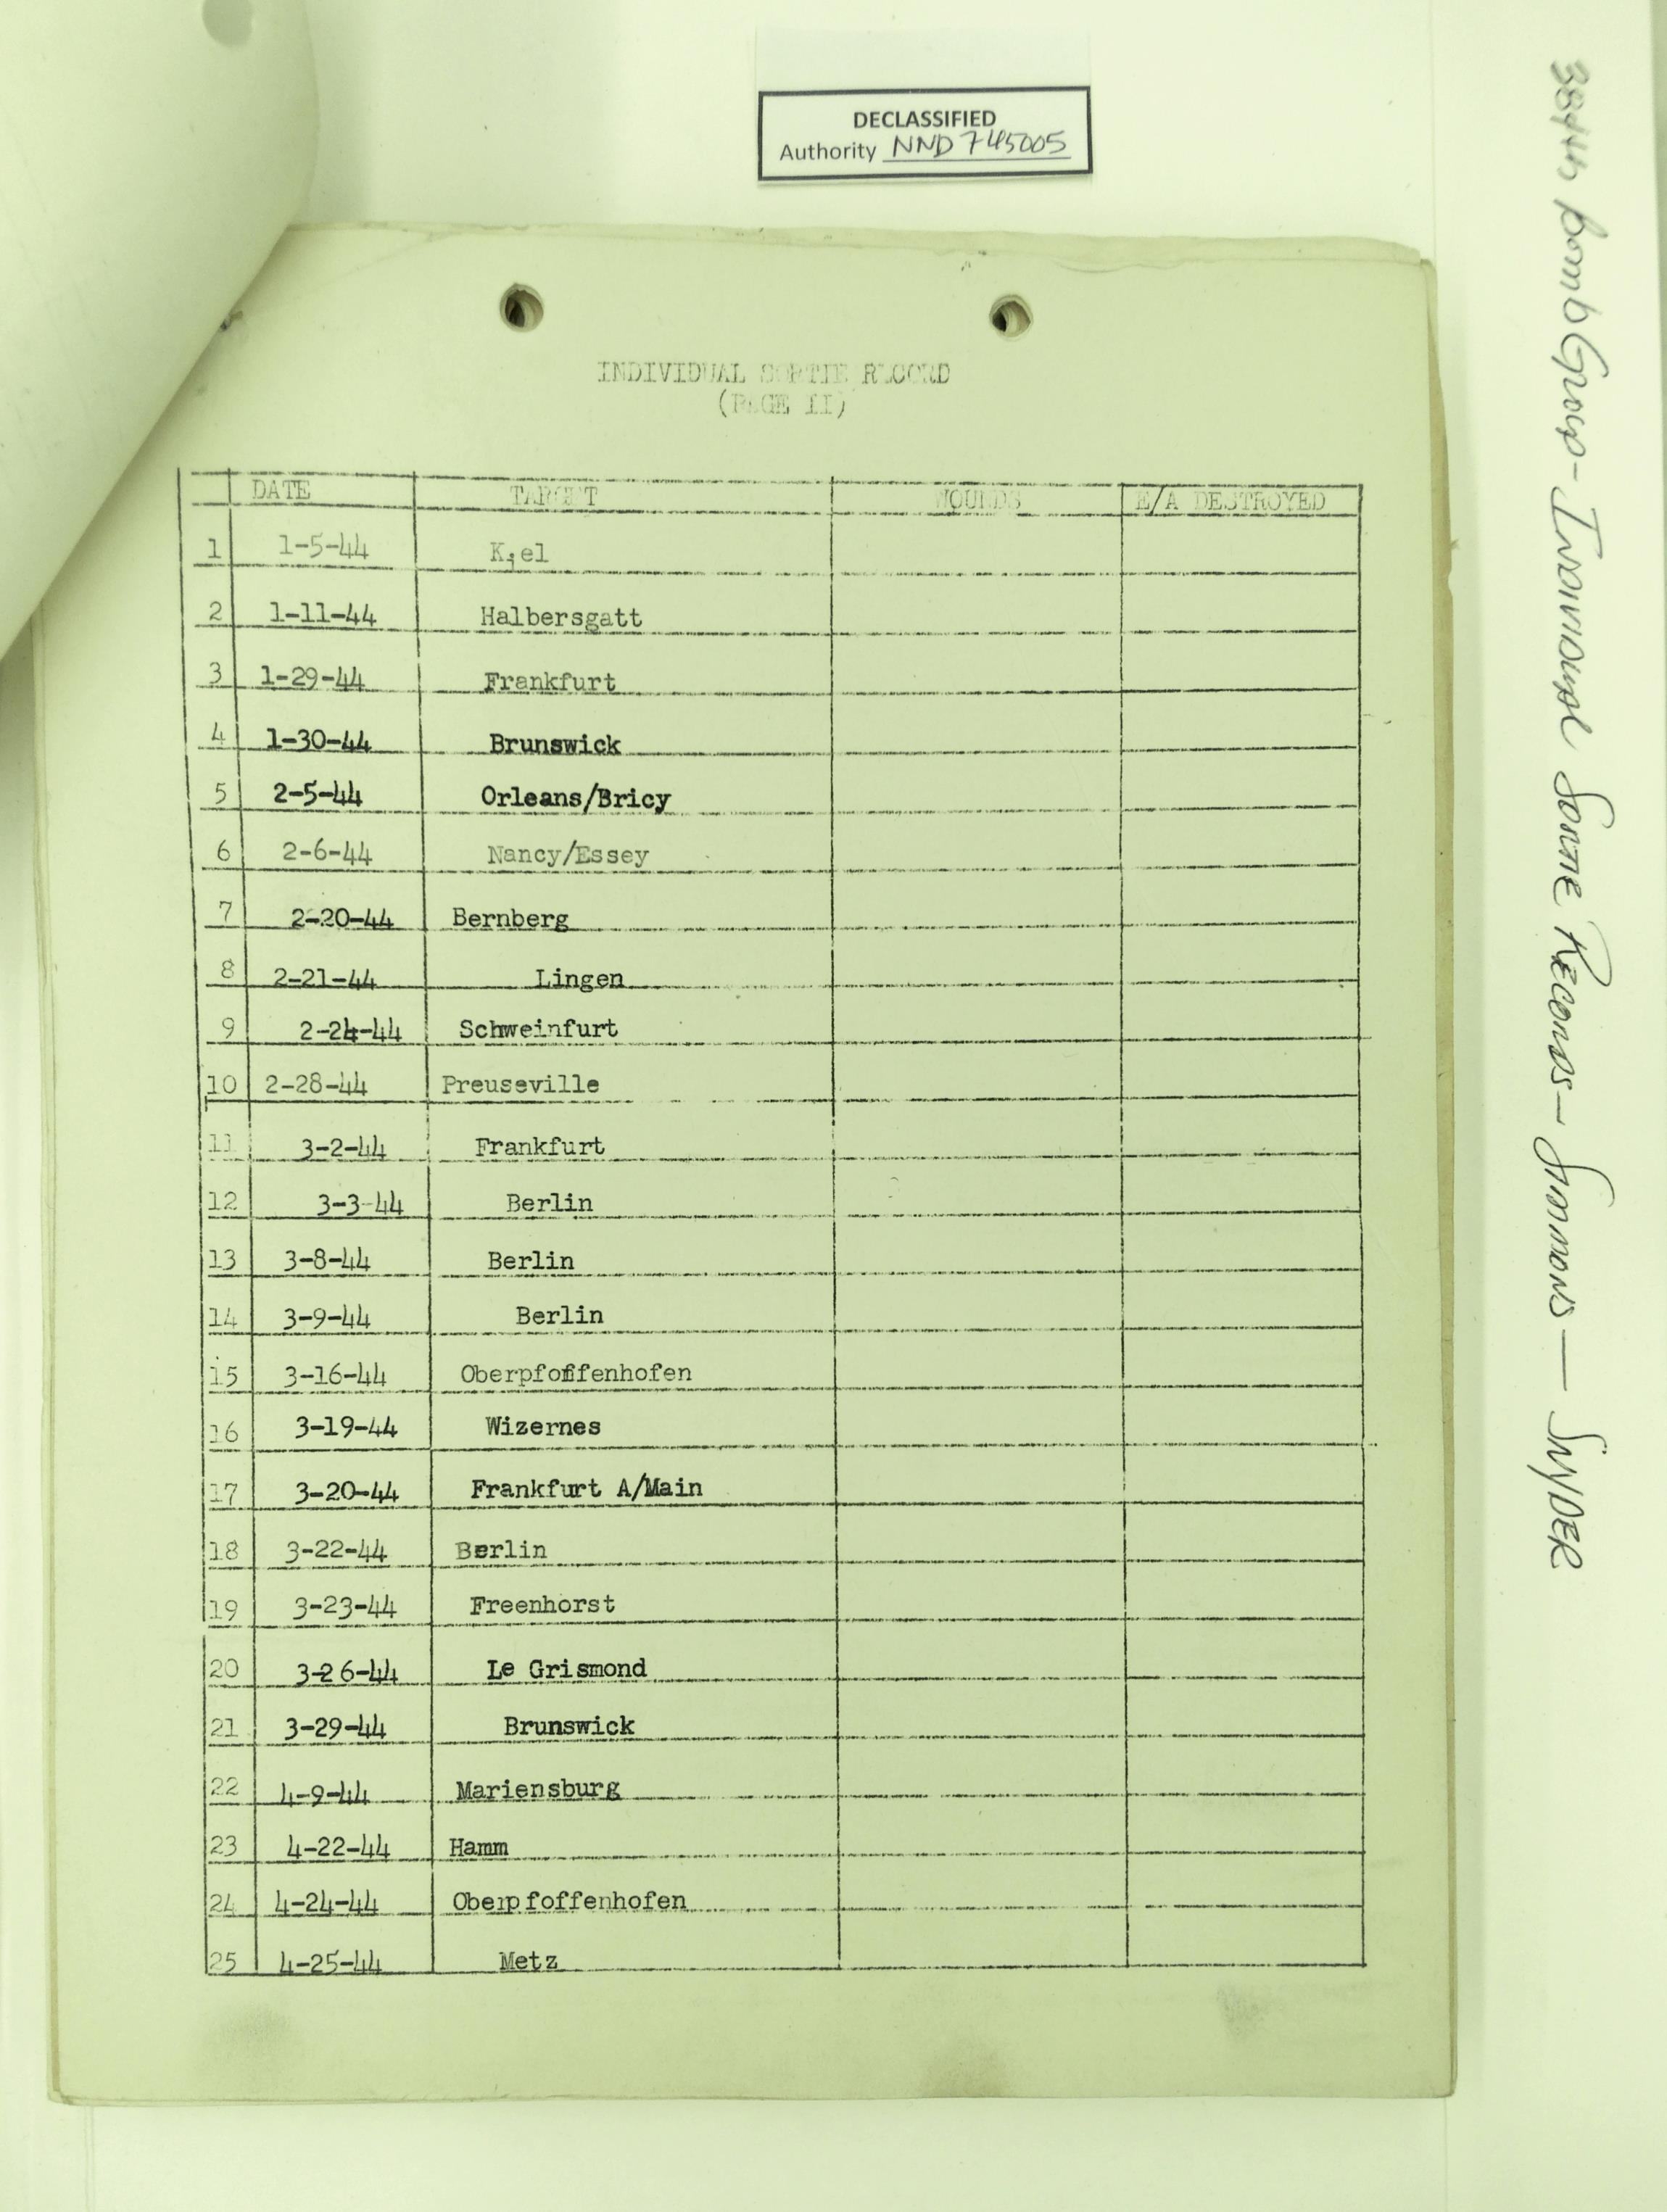 DECLASSIFIED
Authority NND 745005
INDIVIDUAL SORTIE RECORD
(PAGE II)
DATE TARGET WOUNDS E/A DESTROYED
1 1-5-44 Kiel
2 1-11-44 Halbersgatt
3 1-29-44 Frankfurt
4 1-30-44 Brunswick
5 2-5-44 Orleans/Bricy
6 2-6-44 Nancy/Essey
7 2-20-44 Bernberg
8 2-21-44 Lingen
9 2-24-44 Schweinfurt
10 2-28-44 Preuseville
11 3-2-44 Frankfurt
12 3-3-44 Berlin
13 3-8-44 Berlin
14 3-9-44 Berlin
15 3-16-44 Oberpfoffenhofen
16 3-19-44 Wizernes
17 3-20-44 Frankfurt A/Main
18 3-22-44 Berlin
19 3-23-44 Freenhorst
20 3-26-44 Le Grismond
21 3-29-44 Brunswick
22 4-9-44 Mariensburg
23 4-22-44 Hamm
24 4-24-44 Oberpfoffenhofen
25 4-25-44 Metz
384th Bomb Group - Individual Sortie Records - Simmons - Snyder